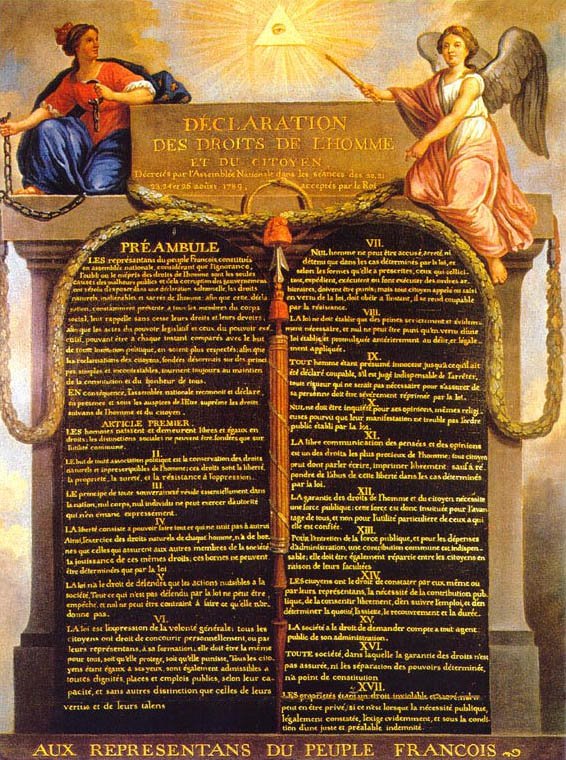 DÉCLARATION
DES DROITS DE L'HOMME
ET DU CITOYEN,
Décretés par l'Assemblée Nationale dans les séances des 20, 21
23, 24 et 26 août 1789, acceptés par le Roi
PRÉAMBULE
LES représentans du peuple Francois, constitués
en assemblée nationale, considérant que l'ignorance,
l'oubli ou le mépris des droits de l'homme sont les seules
causes des malheurs publics et de la corruption des gouvernemens
ont résolu d'exposer dans une déclaration solemnelle, les droits
naturels, inaliénables et sacrés de l'homme; afin que cette décla-
ration, constamment présente a tous les membres du corps
social, leur rappelle sans cesse leurs droits et leurs devoirs;
afin que les actes du pouvoir legislatif et ceux du pouvoir exé-
cutif, pouvant être a chaque instant comparés avec le but
de toute institution politique, en soient plus respectés; afin que
les reclamations des citoyens, fondées désormais sur des princi-
pes simples et incontestables, tournent toujours au maintien
de la constitution et du bonheur de tous.
EN conséquence, l'assemblée nationale reconnoit et déclare,
en presence et sous les auspices de l'Etre suprême les droits
suivans de l'homme et du citoyen.
ARTICLE PREMIER.
LES hommes naissent et demeurent libres et égaux en
droits; les distinctions sociales ne peuvent être fondées que sur
l'utilité commune.
II.
LE but de toute association politique est la conservation des droits
naturels et inprescriptibles de l'homme; ces droits sont la liberté,
la propriété, la sureté, et la résistance à l'oppression.
III.
LE principe de toute souveraineté réside essentiellement dans
la nation, nul corps, nul individu ne peut exercer d'autorité
qui n'en émane expressement.
IV.
LA liberté consiste a pouvoir faire tout ce qui ne nuit pas à autrui
Ainsi, l'exercice des droits naturels de chaque homme, n'a de bor-
nes que celles qui assurent aux autres membres de la société
la jouissance de ces mêmes droits; ces bornes ne peuvent
être déterminées que par la loi
V.
LA loi n'a le droit de défendre que les actions nuisibles à la
société. Tout ce qui n'est pas défendu par la loi ne peut être
empêché, et nul ne peut être contraint à faire ce qu'elle n'or-
donne pas.
VI.
LA loi est l'expression de la volonté générale; tous les
citoyens ont droit de concourir personnellement, ou par
leurs représentans, à sa formation; elle doit être la même
pour tous, soit qu'elle protege, soit qu'elle punisse. Tous les cito-
yens étant égaux à ses yeux, sont également admissibles a
toutes dignités, places et emplois publics, selon leur ca-
pacité, et sans autres distinction que celles de leurs
vertus et de leurs talens
VII.
NUL homme ne peut être accusé, arreté, ni
détenu que dans les cas déterminés par la loi, et
selon les formes qu'elle a prescrites, ceux qui sollici-
tent, expédient, exécutent ou font exécuter des ordres ar-
bitraires, doivent être punis; mais tout citoyen appelé ou saisi
en vertu de la loi, doit obéir a l'instant, il se rend coupable
par la résistance.
VIII.
LA loi ne doit établir que des peines strictement et évidem-
ment nécessaire, et nul ne peut être puni qu'en vertu d'une
loi établie et promulguée antérieurement au délit, et légale-
ment appliquée.
IX.
TOUT homme étant présumé innocent jusqu'a ce qu'il ait
été déclaré coupable, s'il est jugé indispensable de l'arrêter,
toute rigueur qui ne serait pas nécessaire pour s'assurer de
sa personne doit être sévèrement réprimée par la loi.
X.
NUL ne doit être inquiété pour ses opinions, mêmes religi-
euses pourvu que leur manifestation ne trouble pas l'ordre
public établi par la loi.
XI.
LA libre communication des pensées et des opinions
est un des droits les plus precieux de l'homme; tout citoyen
peut donc parler écrire, imprimer librement: sauf à ré-
pondre de l'abus de cette liberté dans les cas déterminés
par la loi.
XII.
LA garantie des droits de l'homme et du citoyen nécessite
une force publique; cette force est donc instituée pour l'avan-
tage de tous, et non pour l'utilité particuliere de ceux a qui
elle est confiée.
XIII.
Pour l'entretien de la force publique, et pour les dépenses
d'administration, une contribution commune est indispen-
sable; elle doit être également répartie entre les citoyens en
raison de leurs facultées
XIV.
LES citoyens ont le droit de constater par eux même ou
par leurs représentans, la nécessité de la contribution pub-
lique, de la consentir librement, d'en suivre l'emploi, et d'en
déterminer la quotité, l'assiette, le recouvrement et la durée.
XV.
LA société a le droit de demander compte a tout agent
public de son administration.
XVI.
TOUTE société, dans laquelle la garantie des droits n'est
pas assuré, ni les séparation des pouvoirs déterminée,
n'a point de constitution
XVII.
LES propriétés étant un droit inviolable et sacré, nul ne
peut en être privé, si ce n'est lorsque la nécessité publique,
légalement constatée, l'exige evidemment, et sous la condi-
tion d'une juste et préalable indemnité.
AUX REPRESENTANS DU PEUPLE FRANCOIS